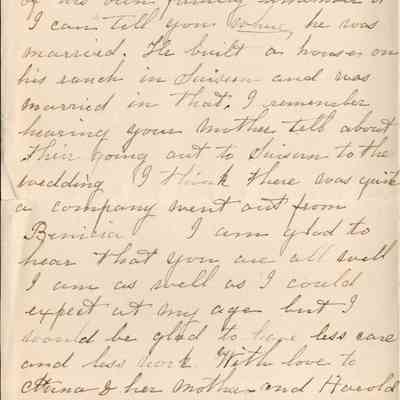 of his own family remember it
I can tell you where he was
married. He built a house on
his ranch in Suisun and was
married in that. I remember
hearing your mother tell about
thir going out to Suisun to the
wedding I think there was quite
a company went out from
Benicia I am glad to
hear that you are all well
I am as well as I could
expect at my age but I
would be glad to have less care
and less work With love to
& her mother and Harold